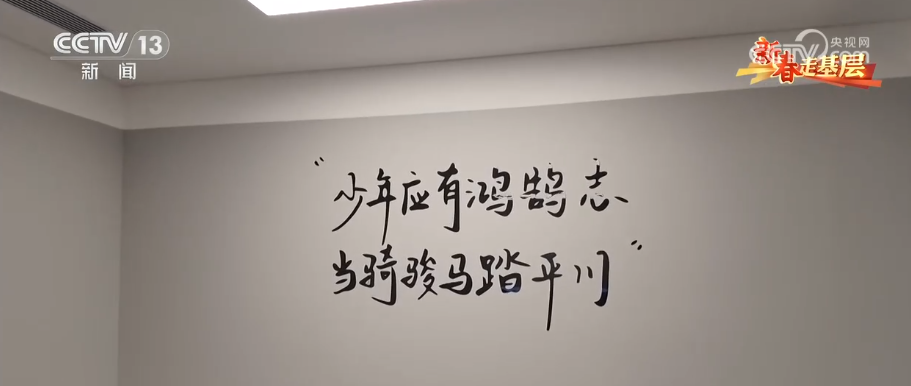 CCTV 13
新闻
央视网
新春走基层
“少年应有鸿鹄志
当骑骏马踏平川”